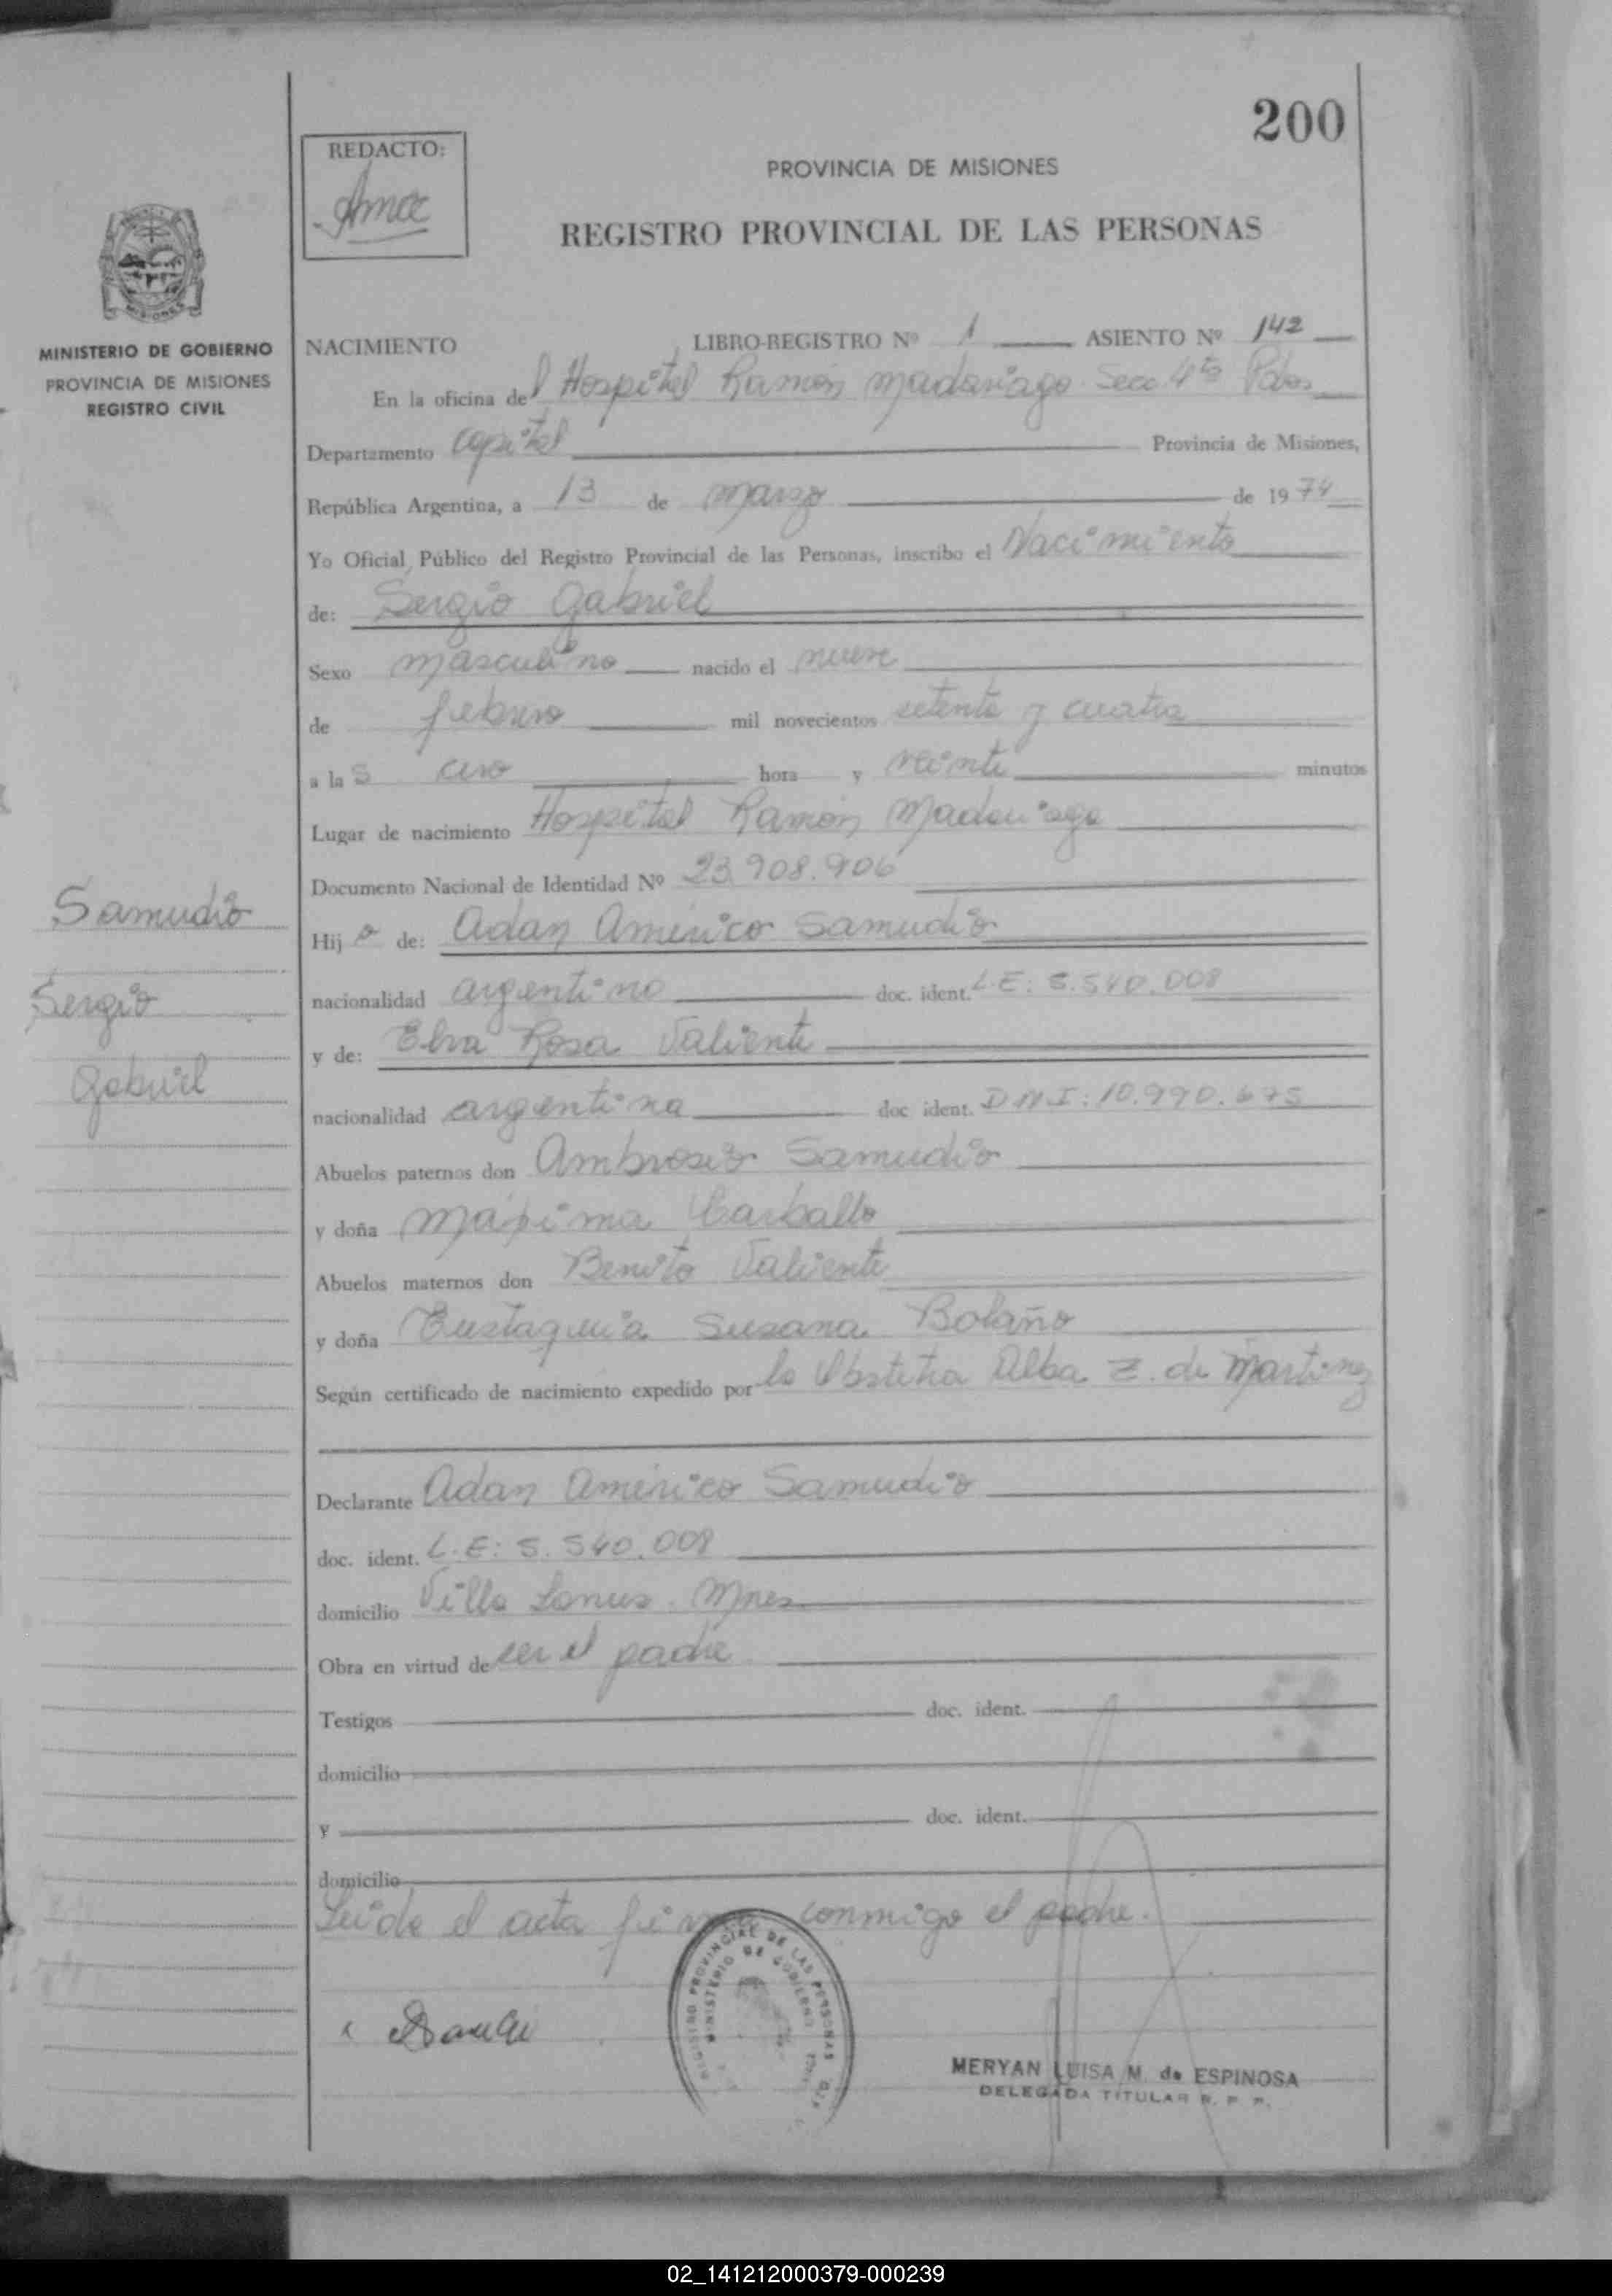 200
REDACTO:
PROVINCIA DE MISIONES
REGISTRO PROVINCIAL DE LAS PERSONAS
MINISTERIO DE GOBIERNO
PROVINCIA DE MISIONES
REGISTRO CIVIL
NACIMIENTO LIBRO-REGISTRO Nº 1 ASIENTO Nº 142
En la oficina del Hospital Ramón Madariaga. Secc. 4ta Pdas
Departamento Capital Provincia de Misiones,
República Argentina, a 13 de marzo de 1974
Yo Oficial Público del Registro Provincial de las Personas, inscribo el Nacimiento
de: Sergio Gabriel
Sexo masculino nacido el nueve
de febrero mil novecientos setenta y cuatro
a las cero hora y veinte minutos
Lugar de nacimiento Hospital Ramón Madariaga
Documento Nacional de Identidad Nº 23.908.906
Samudio
Hijo de: Adan Américo Samudio
nacionalidad argentino doc. ident. L.E: 5.540.008
Sergio
y de: Elva Rosa Valiente
Gabriel
nacionalidad argentina doc ident. DNI: 10.990.675
Abuelos paternos don Ambrosio Samudio
y doña Máxima Carballo
Abuelos maternos don Benito Valiente
y doña Eustaquia Susana Bolaño
Según certificado de nacimiento expedido por la Obstetra Alba Z. de Martinez
Declarante Adan Américo Samudio
doc. ident. L.E: 5.540.008
domicilio Villa Lanus. Mnes
Obra en virtud de ser el padre
Testigos doc. ident.
domicilio
y doc. ident.
domicilio
Leida el acta firma conmigo el padre.
REGISTRO PROVINCIAL DE LAS PERSONAS
MINISTERIO DE GOBIERNO
MERYAN LUISA M. de ESPINOSA
DELEGADA TITULAR R. P. P.
02_141212000379-000239